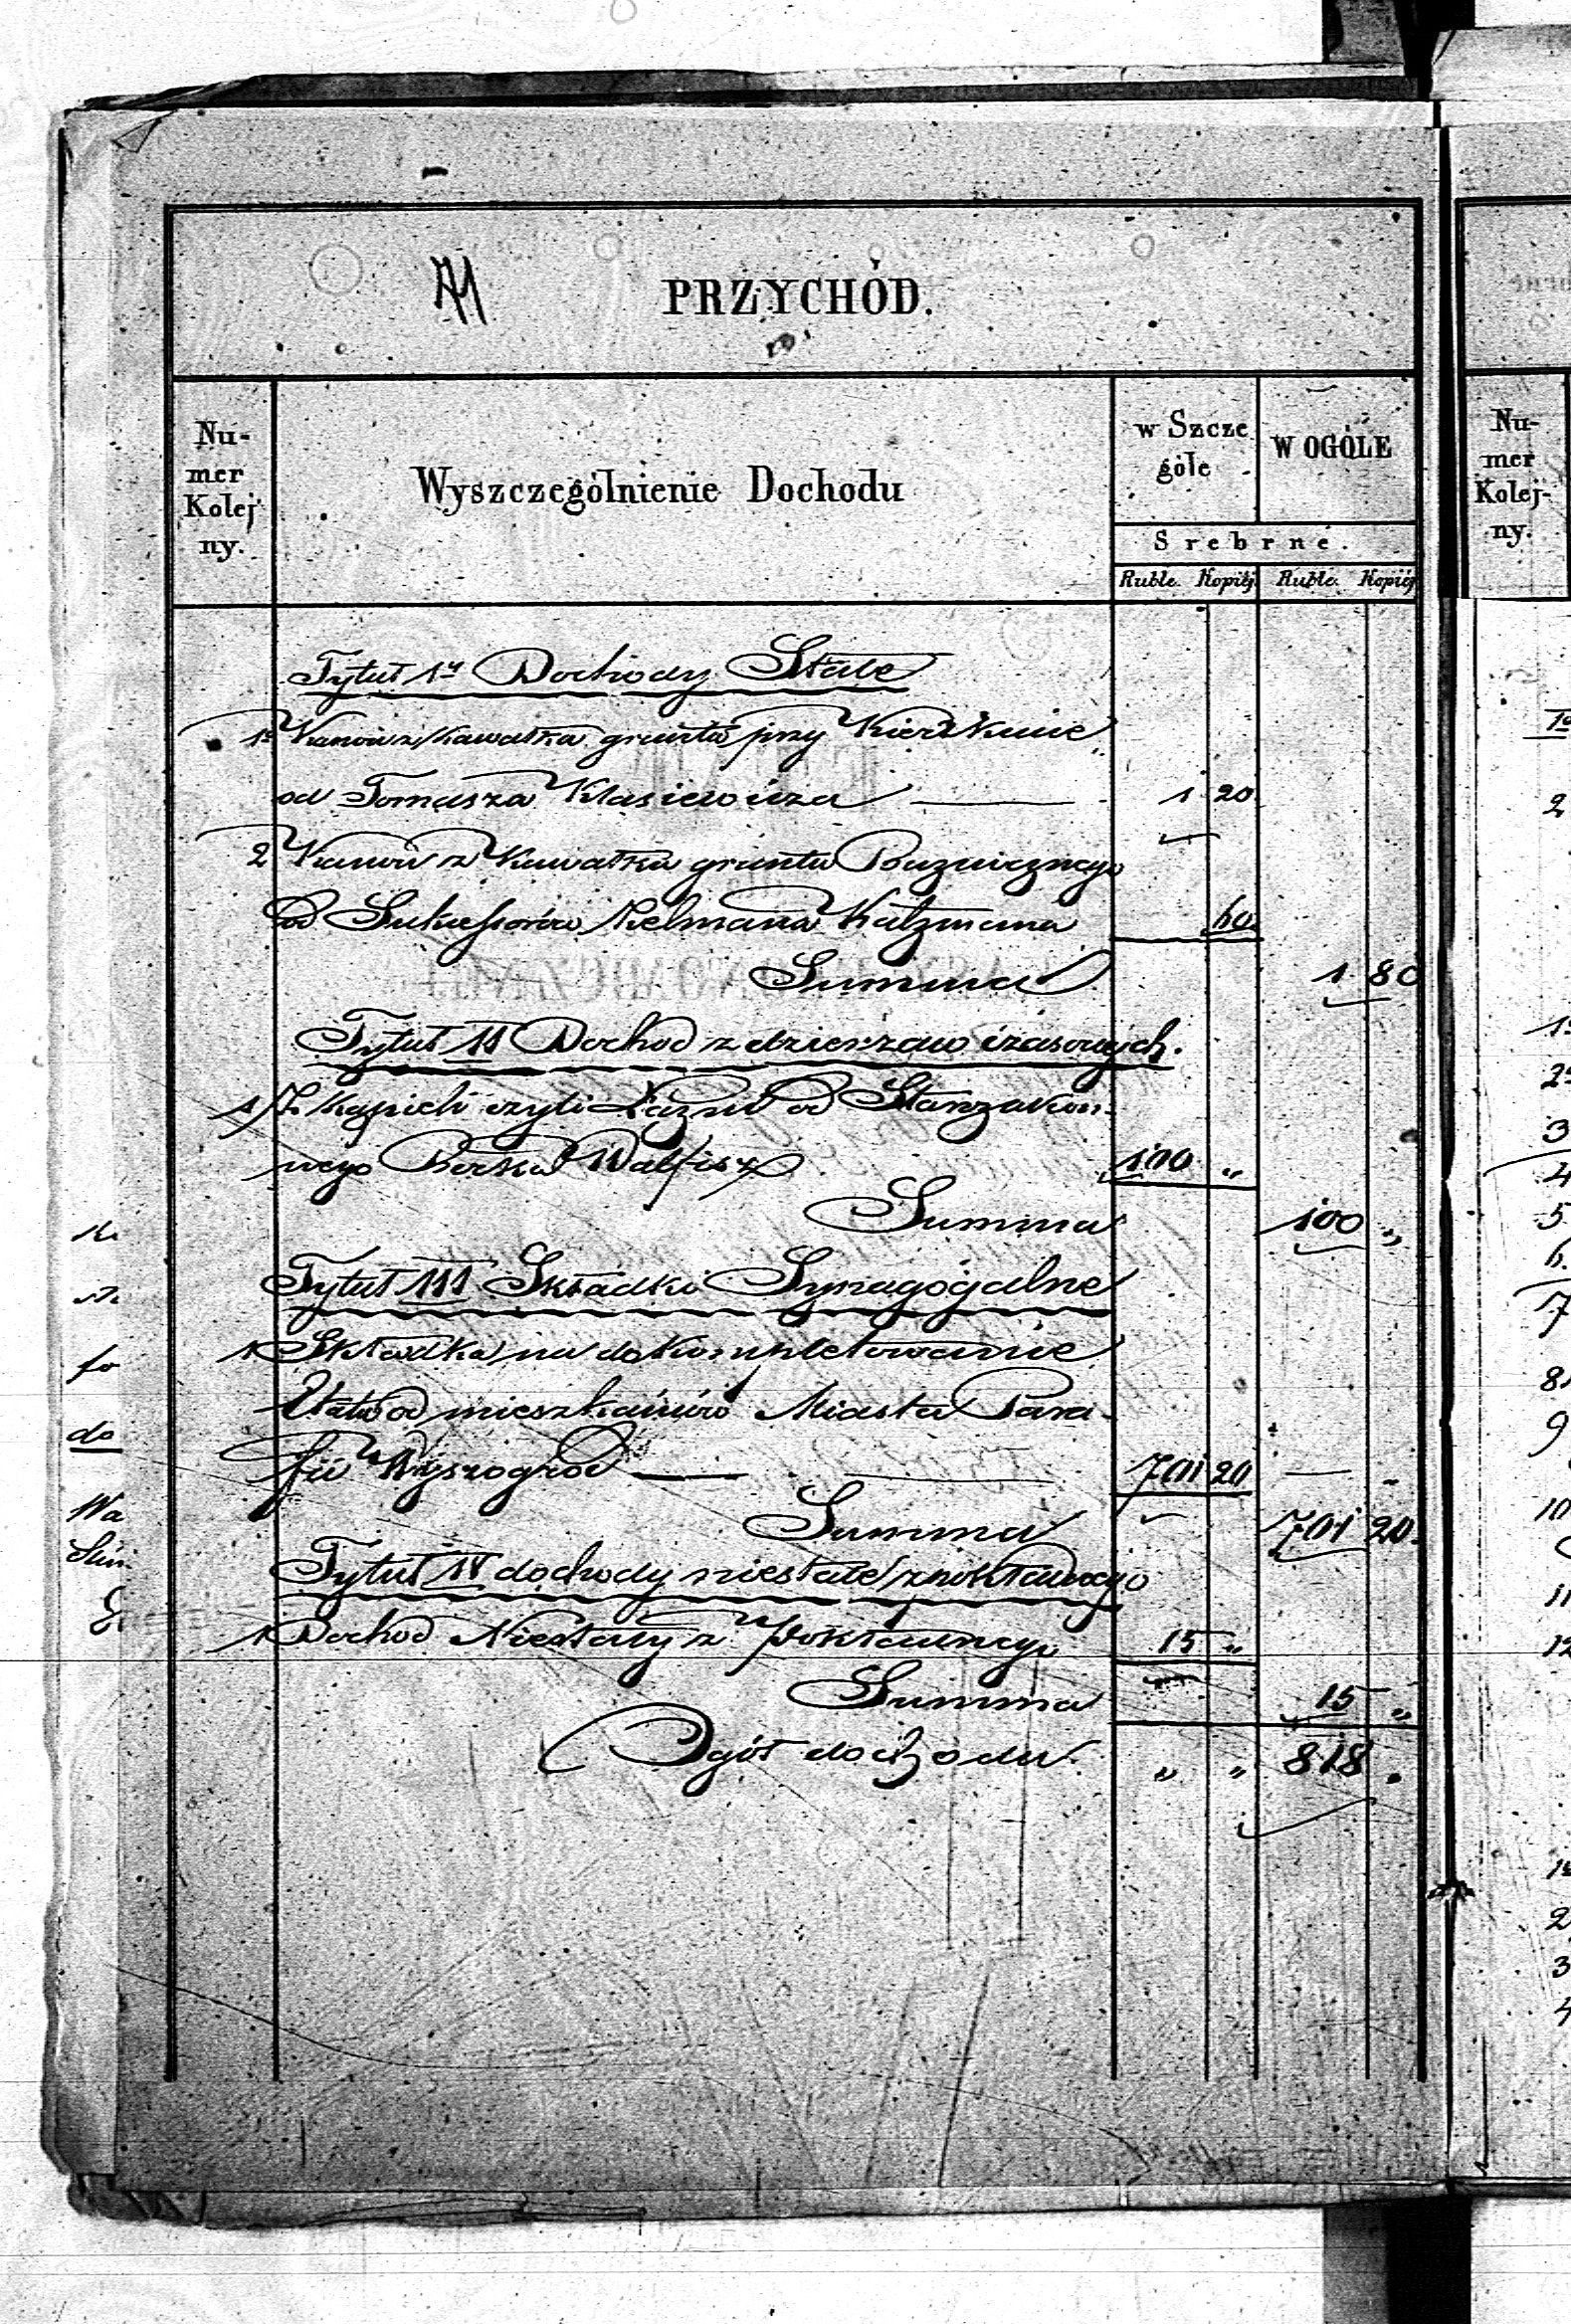 PRZYCHÓD.
Nu-
mer
Kolej
ny.
Wyszczególnienie Dochodu
w Szcze
góle
W OGÓLE
Srebrne.
Ruble. Kopiéj Ruble. Kopiéj
Tytuł 1y Dochody Stałe
1o Kanon z kawałka gruntu przy Kierkucie
od Tomasza Klasiewicza 1 20
2 Kanon z Kawałka gruntu
od Sukcessorów Zelmana Katzmana 60
Summa 1 80
Tytuł II Dochod z dzierzaw czasowych.
1/ Z Kąpieli czyli Łazni od Starozakon-
nego Berka Walfisz 100 "
Summa 100 "
Tytuł III Składki Synagogalne
1 Składka na dokompletowanie
Etatu od mieszkańców Miasta Para-
fii Wyszogrod 701 20
Summa 701 20
Tytuł IV dochody niestałe z pokładnego
1 Dochod Niestały z Pokładnego 15 "
Summa 15 "
Ogół dochodu " " 818 "
Nu-
mer
Kolej-
ny.